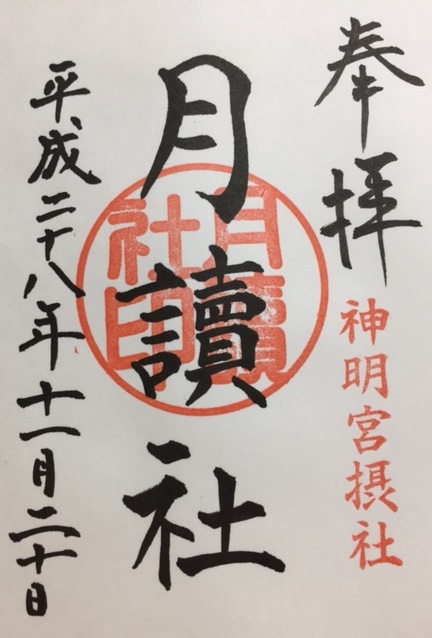 奉拝
神明宮摂社
月讀社
月讀
社印
平成二十八年十一月二十日